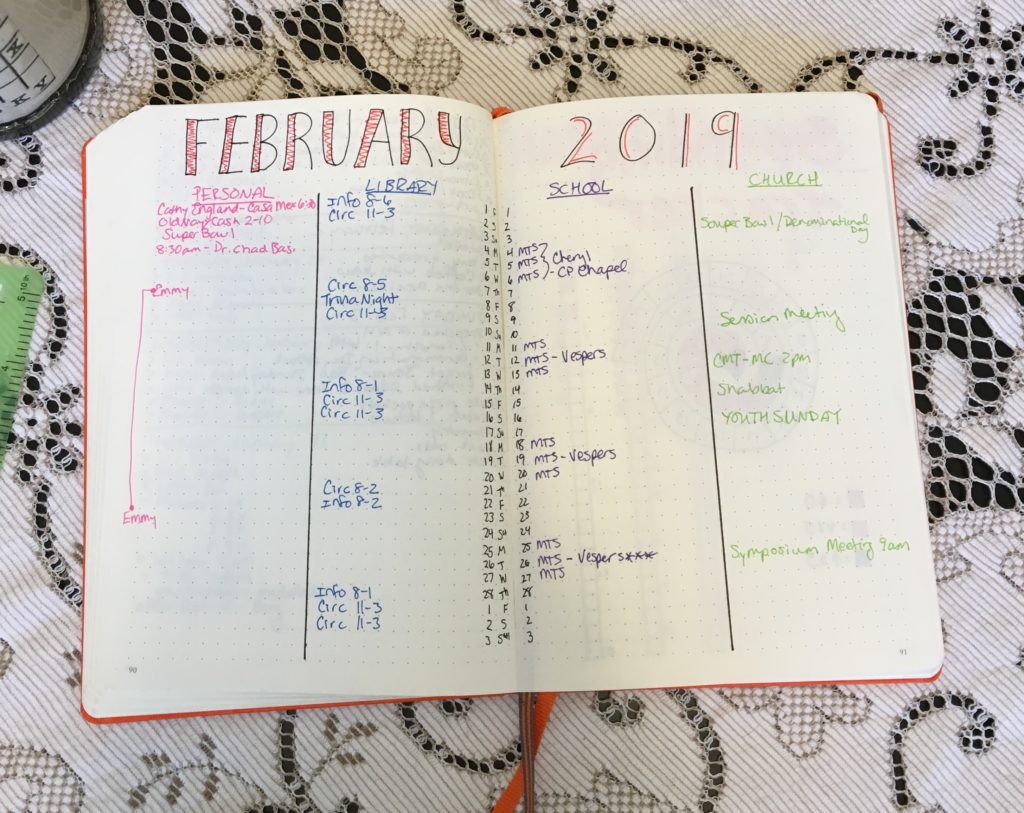 FEBRUARY 2019
PERSONAL
Cathy England - Casa Mex 6:30
Old Navy Cash 2-10
Super Bowl
8:30am - Dr. Chad Bas.
Emmy
Emmy
LIBRARY
Info 8-6
Circ 11-3
Circ 8-5
Trivia Night
Circ 11-3
Info 8-1
Circ 11-3
Circ 11-3
Circ 8-2
Info 8-2
Info 8-1
Circ 11-3
Circ 11-3
SCHOOL
1 F 1
2 S 2
3 Su 3
4 M 4 MTS
5 T 5 MTS Cheryl
6 W 6 MTS - CP Chapel
7 Th 7
8 F 8
9 S 9
10 Su 10
11 M 11 MTS
12 T 12 MTS - Vespers
13 W 13 MTS
14 Th 14
15 F 15
16 S 16
17 Su 17
18 M 18 MTS
19 T 19 MTS - Vespers
20 W 20 MTS
21 Th 21
22 F 22
23 S 23
24 Su 24
25 M 25 MTS
26 T 26 MTS - Vespers***
27 W 27 MTS
28 Th 28
1 F 1
2 S 2
3 Su 3
CHURCH
Souper Bowl / Denominational
Day
Session Meeting
CMT-MC 2pm
Shabbat
YOUTH SUNDAY
Symposium Meeting 9am
90
91